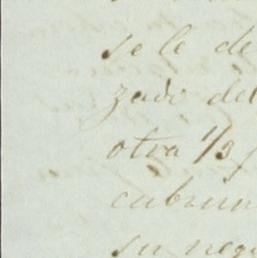 se le de
zado del
otra 1/3
cubrun
su nego